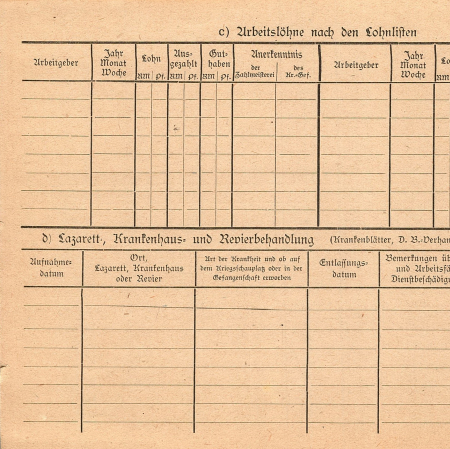 c) Arbeitslöhne nach den Lohnlisten
Arbeitgeber
Jahr
Monat
Woche
Lohn
RM Pf.
Aus-
gezahlt
RM Pf.
Gut-
haben
RM Pf.
Anerkenntnis
der
Zahlmeisterei
des
Kr.-Gef.
Arbeitgeber
Jahr
Monat
Woche
Lo
RM
d) Lazarett-, Krankenhaus- und Revierbehandlung (Krankenblätter, D. B.-Verhan
Aufnahme-
datum
Ort,
Lazarett, Krankenhaus
oder Revier
Art der Krankheit und ob auf
dem Kriegsschauplatz oder in der
Gefangenschaft erworben
Entlassungs-
datum
Bemerkungen üb
und Arbeitsfä
Dienstbeschädigu